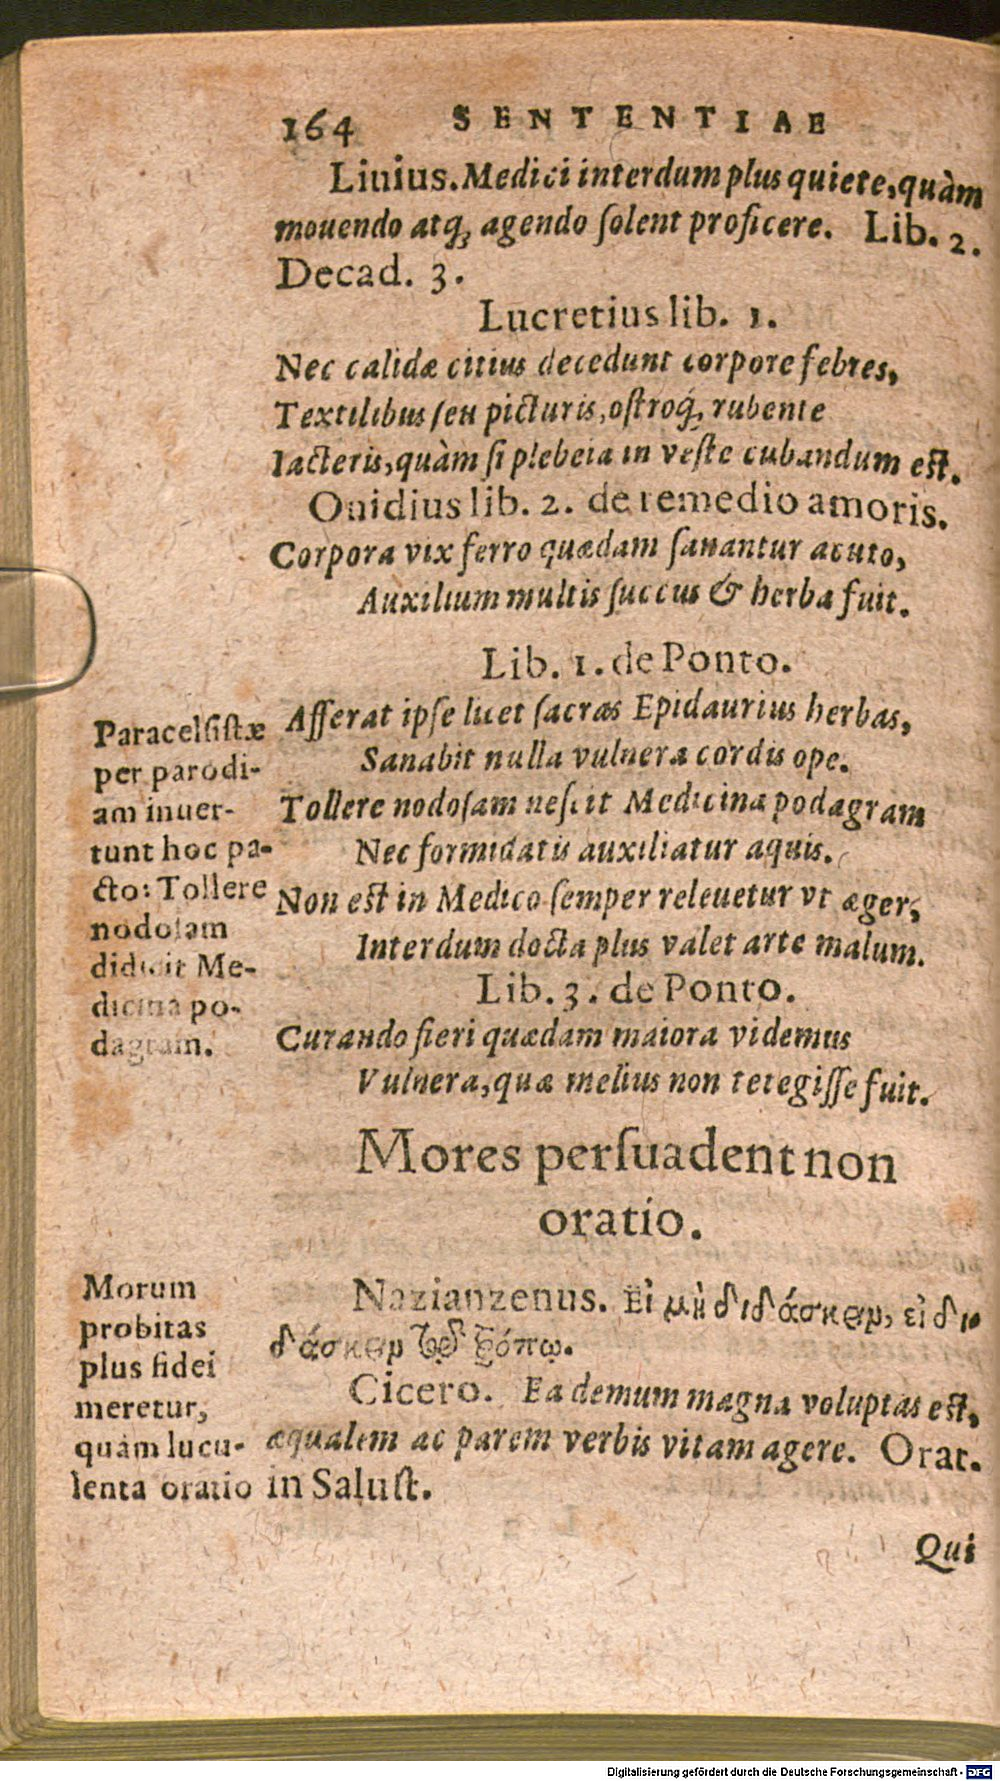 164 SENTENTIAE
Liuius. Medici interdum plus quiete, quàm
mouendo atq; agendo ſolent proficere. Lib. 2.
Decad. 3.
Lucretius lib. 1.
Nec calidæ citius decedunt corpore febres,
Textilibus ſeu picturis, oſtroq; rubente
Iacteris, quàm ſi plebeia in veſte cubandum eſt.
Ouidius lib. 2. de remedio amoris.
Corpora vix ferro quædam ſanantur acuto,
Auxilium multis ſuccus & herba fuit.
Lib. 1. de Ponto.
Afferat ipſe licet ſacras Epidaurius herbas,
Sanabit nulla vulnera cordis ope.
Tollere nodoſam neſcit Medicina podagram
Nec formidatis auxiliatur aquis.
Non eſt in Medico ſemper releuetur vt æger,
Interdum docta plus valet arte malum.
Lib. 3. de Ponto.
Curando fieri quædam maiora videmus
Vulnera, quæ melius non tetegiſſe fuit.
Paracelſiſtæ
per parodi-
am inuer-
tunt hoc pa-
cto: Tollere
nodoſam
didicit Me-
dicina po-
dagram.
Mores perſuadent non
oratio.
Nazianzenus. Εἰ μὴ διδάσκειν, εἰ δι-
δάσκειν τῷ τρόπῳ.
Cicero. Ea demum magna voluptas eſt,
æqualem ac parem verbis vitam agere. Orat.
in Saluſt.
Morum
probitas
plus fidei
meretur,
quàm lucu-
lenta oratio
Qui
Digitalisierung gefördert durch die Deutsche Forschungsgemeinschaft - DFG